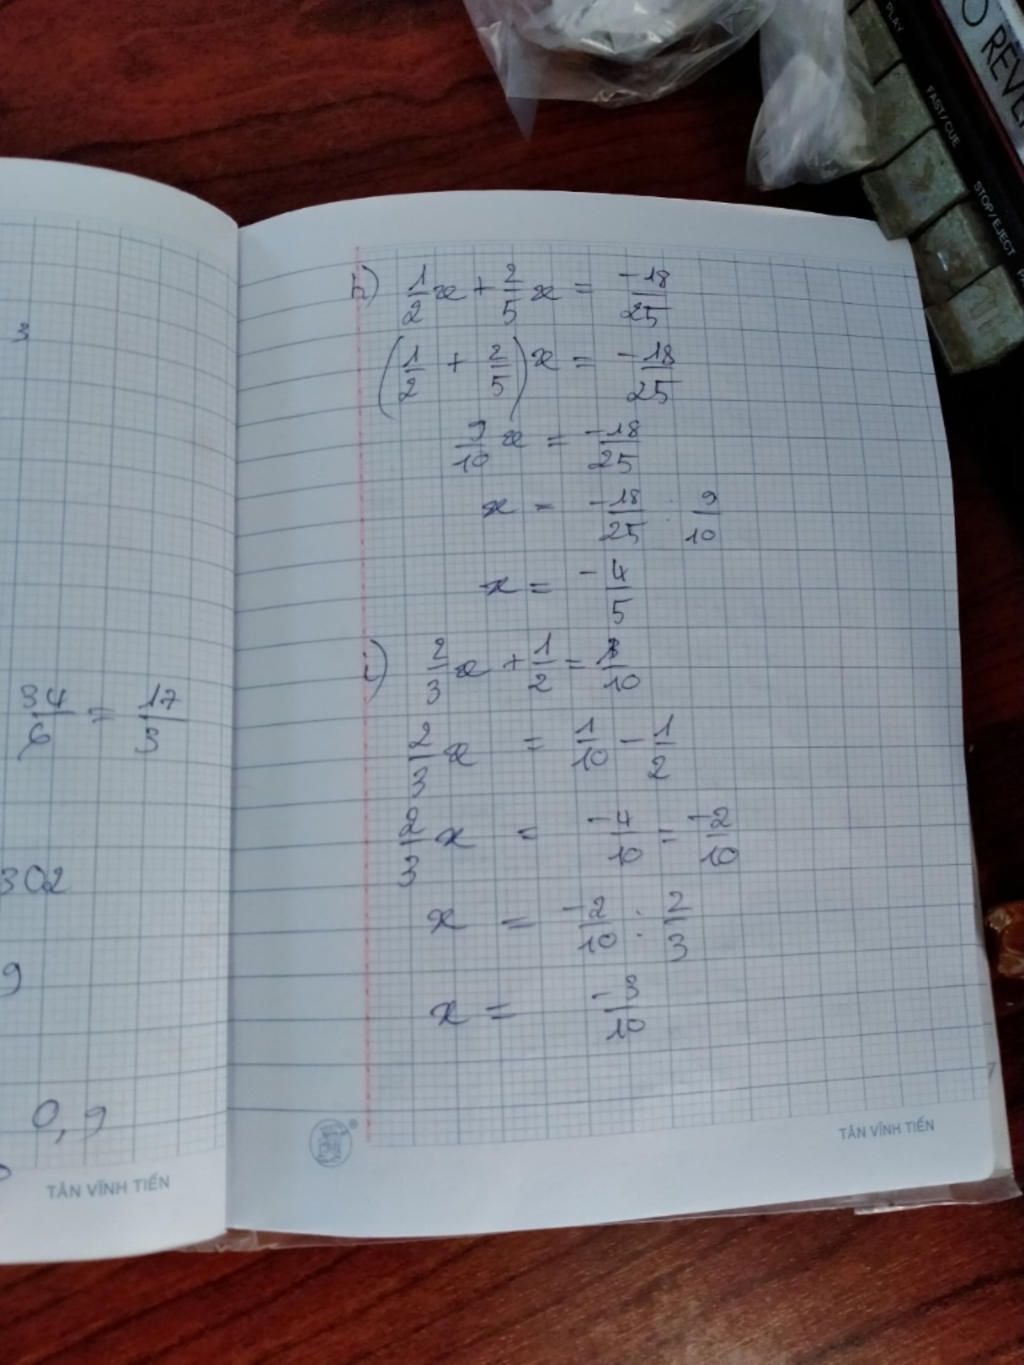 3
34/6 = 17/3
302
9
0,9
TÂN VĨNH TIẾN
h) 1/2 x + 2/5 x = -18/25
(1/2 + 2/5) x = -18/25
9/10 x = -18/25
x = -18/25 : 9/10
x = -4/5
i) 2/3 x + 1/2 = 1/10
2/3 x = 1/10 - 1/2
2/3 x = -4/10 = -2/10
x = -2/10 : 2/3
x = -3/10
TÂN VĨNH TIẾN
PLAY
FAST/CUE
STOP/EJECT